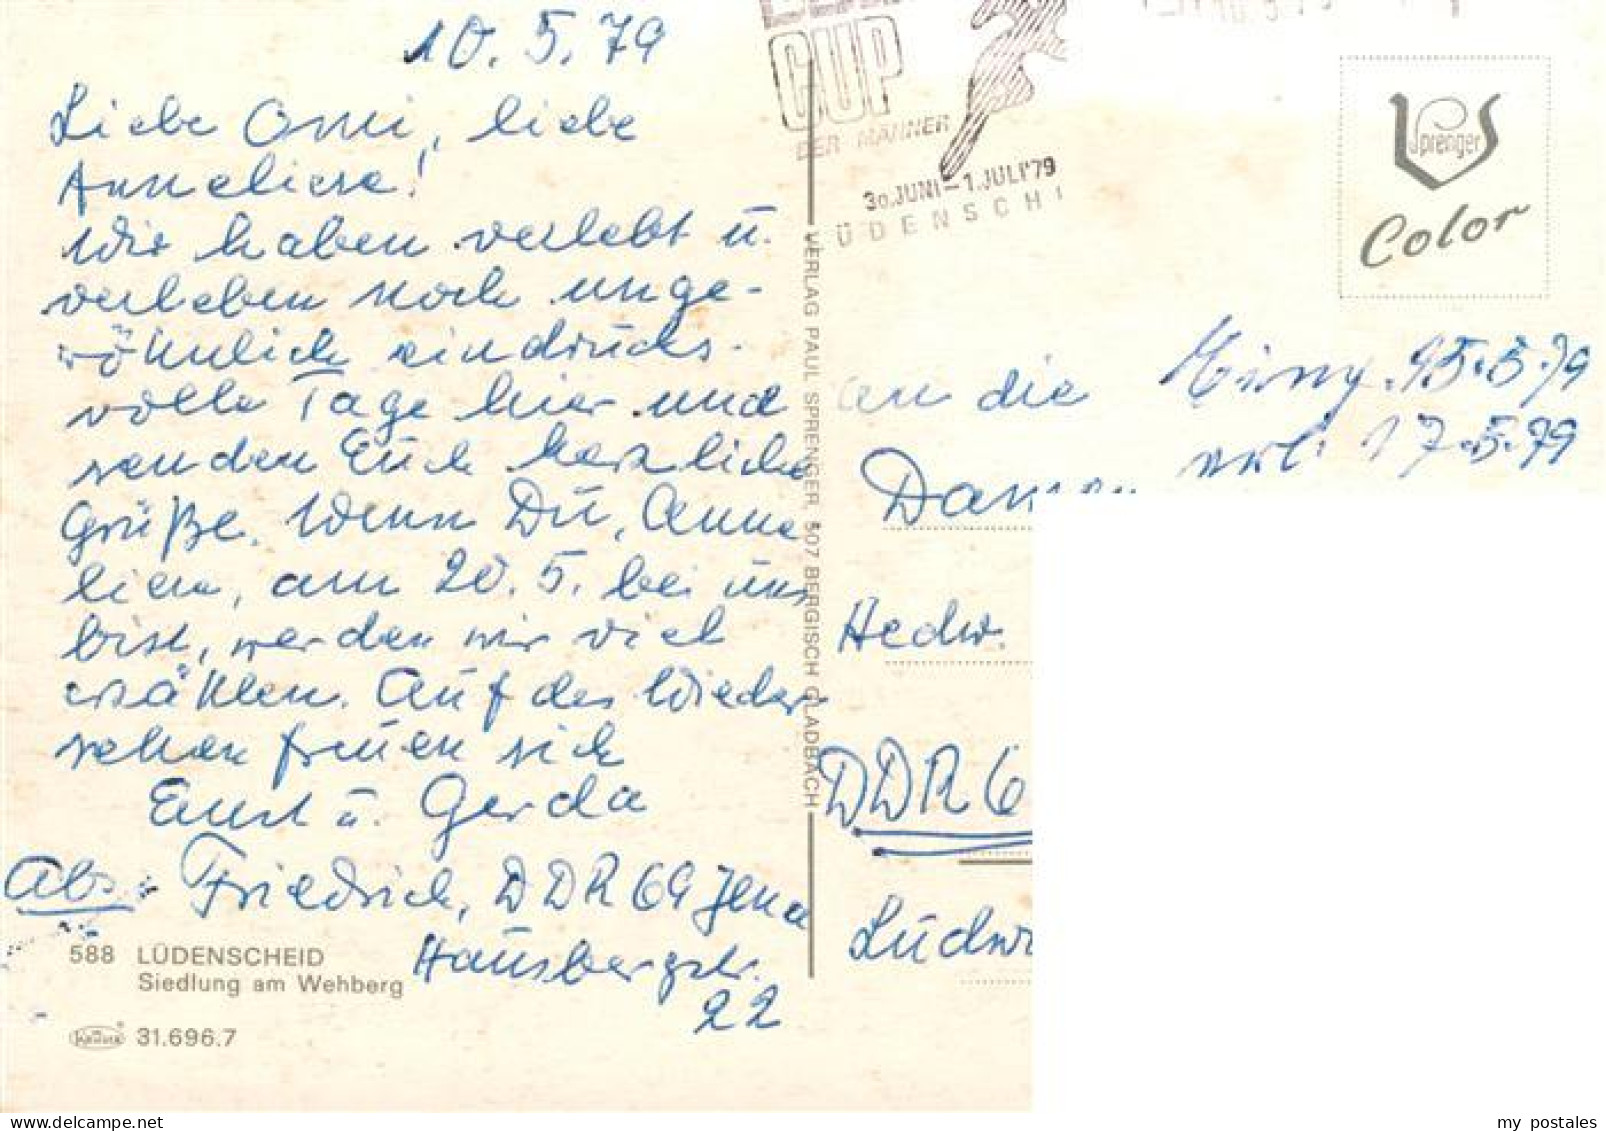 10.5.79
Liebe Omi, liebe
Anneliese!
Wir haben verlebt u.
verleben noch unge-
wöhnlich eindrucks-
volle Tage hier und
senden Euch herzliche
Grüße. Wenn Du, Anne
liese, am 20.5. bei uns
bist, werden wir viel
erzählen. Auf das Wieder-
sehen freuen sich
Ernst u. Gerda
Abs: Friedrich, DDR 69 Jena
Hausbergstr.
22
588 LÜDENSCHEID
Siedlung am Wehberg
31.696.7
VERLAG PAUL SPRENGER, 507 BERGISCH GLADBACH
CUP
DER MÄNNER
30. JUNI - 1. JULI '79
ÜDENSCHI
Sprenger
Color
an die
15.5.79
17.5.79
Hedw.
DDR 6
Ludw
my postales